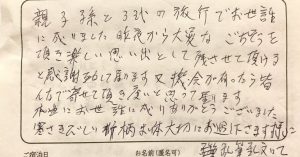 親子孫と3代の旅行でお世話
に成りました 昨晩から大変
頂き楽しい思い出として残させて頂ける
と感謝して居ります 又機会が有ったら皆
んなで寄せて頂き度いと思って居ります
お世話に成りありがとうございました
寒さきびしい折柄お体大切にお過し下さいます様に
ご宿泊日 お名前(匿名可)